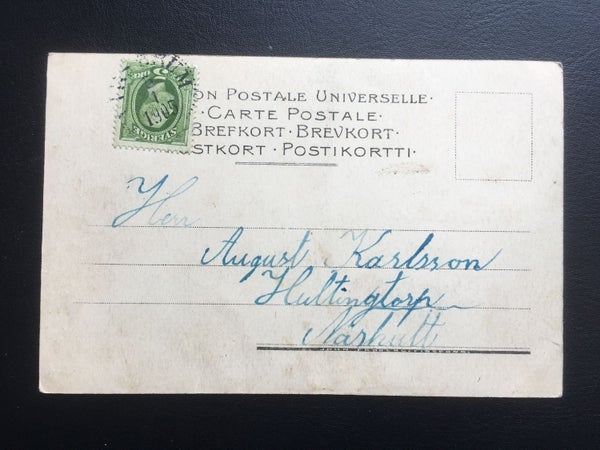 ON POSTALE UNIVERSELLE.
CARTE POSTALE.
BREFKORT · BREVKORT.
STKORT · POSTIKORTTI.
5 ÖRE
SVERIGE
1
1905
Herr
August Karlsson
Hultingtorp
Näshult